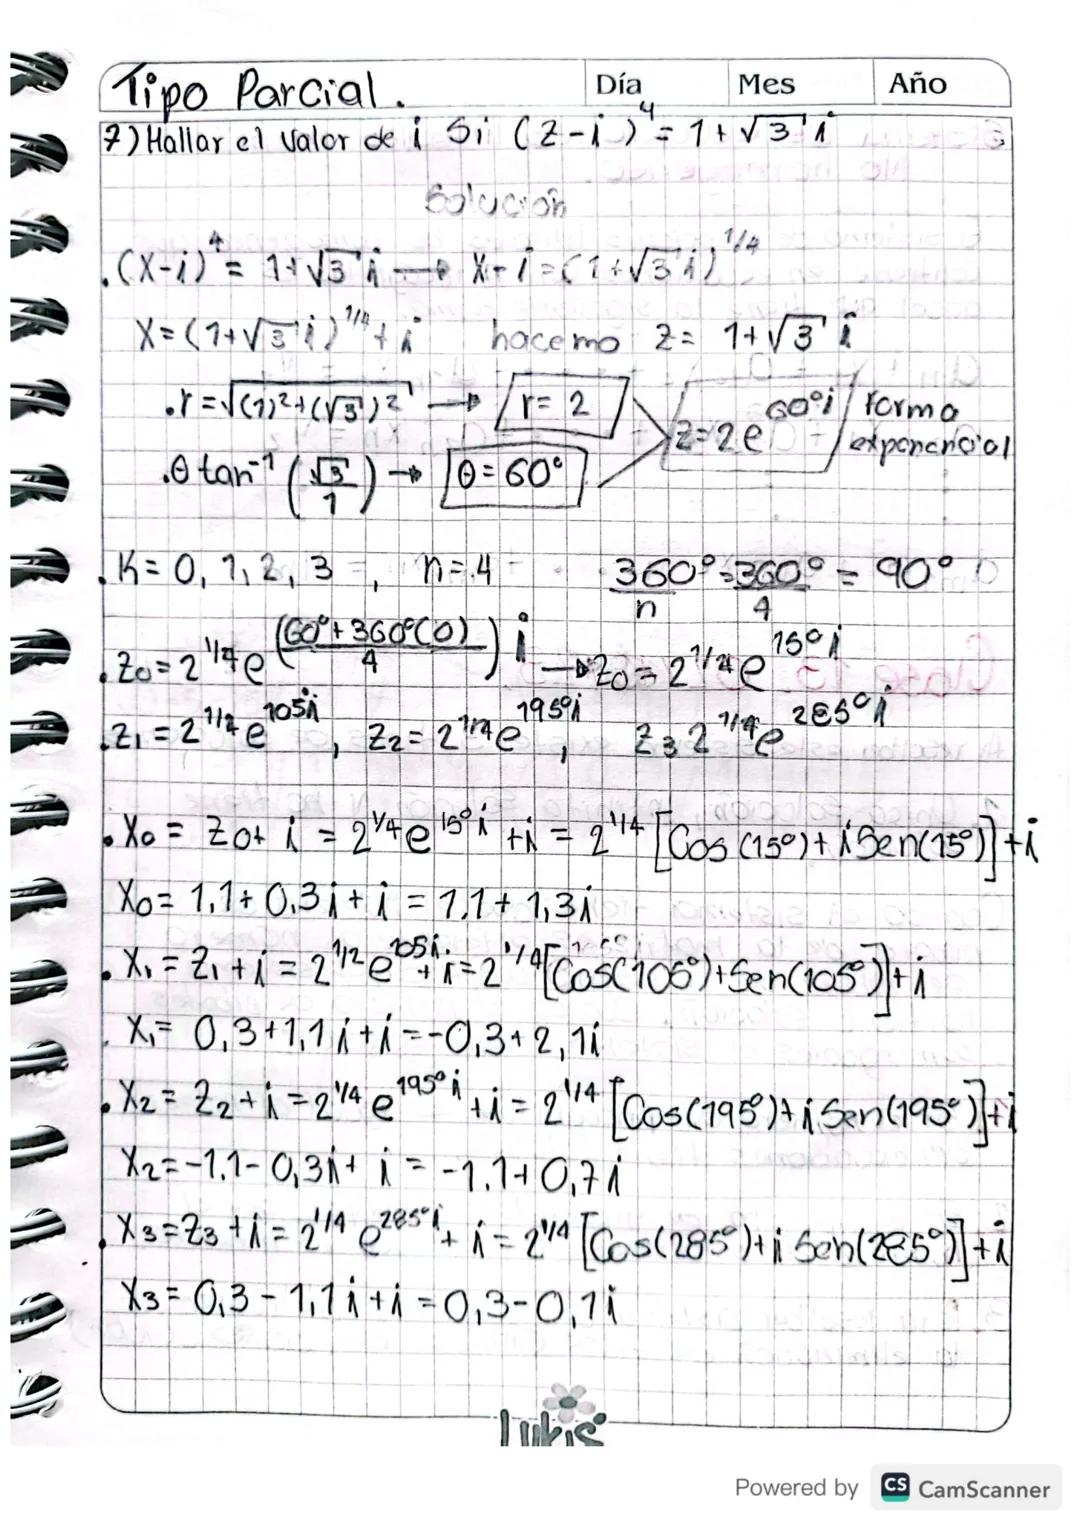 Tipo Parcial. Día Mes Año
7) Hallar el valor de i Si (z-i)⁴ = 1+√3 i
Solución
.(x-i)⁴ = 1+√3 i → x-i = (1+√3 i)^1/4
x = (1+√3 i)^1/4 + i hacemo z = 1+√3 i
.r = √(1)²+(√3)² → r = 2 z = 2e^60°i forma
exponencial
.θ tan⁻¹ (√3/1) → θ = 60°
.K = 0, 1, 2, 3 , n = 4 360°/n = 360°/4 = 90°
.z₀ = 2^1/4 e^((60°+360°(0))/4) i → z₀ = 2^1/4 e^15°i
.z₁ = 2^1/4 e^105i , z₂ = 2^1/4 e^195°i , z₃ 2^1/4 e^285°i
.x₀ = z₀ + i = 2^1/4 e^15°i + i = 2^1/4 [Cos(15°) + i Sen(15°)] + i
x₀ = 1,1 + 0,3i + i = 1,1 + 1,3i
.x₁ = z₁ + i = 2^1/2 e^105i + i = 2^1/4 [Cos(105°) + Sen(105°)] + i
.x₁ = 0,3 + 1,1i + i = -0,3 + 2,1i
.x₂ = z₂ + i = 2^1/4 e^195°i + i = 2^1/4 [Cos(195°) + i Sen(195°)] + i
x₂ = -1,1 - 0,3i + i = -1,1 + 0,7i
.x₃ = z₃ + i = 2^1/4 e^285°i + i = 2^1/4 [Cos(285°) + i Sen(285°)] + i
x₃ = 0,3 - 1,1i + i = 0,3 - 0,1i
Lukis
Powered by CS CamScanner